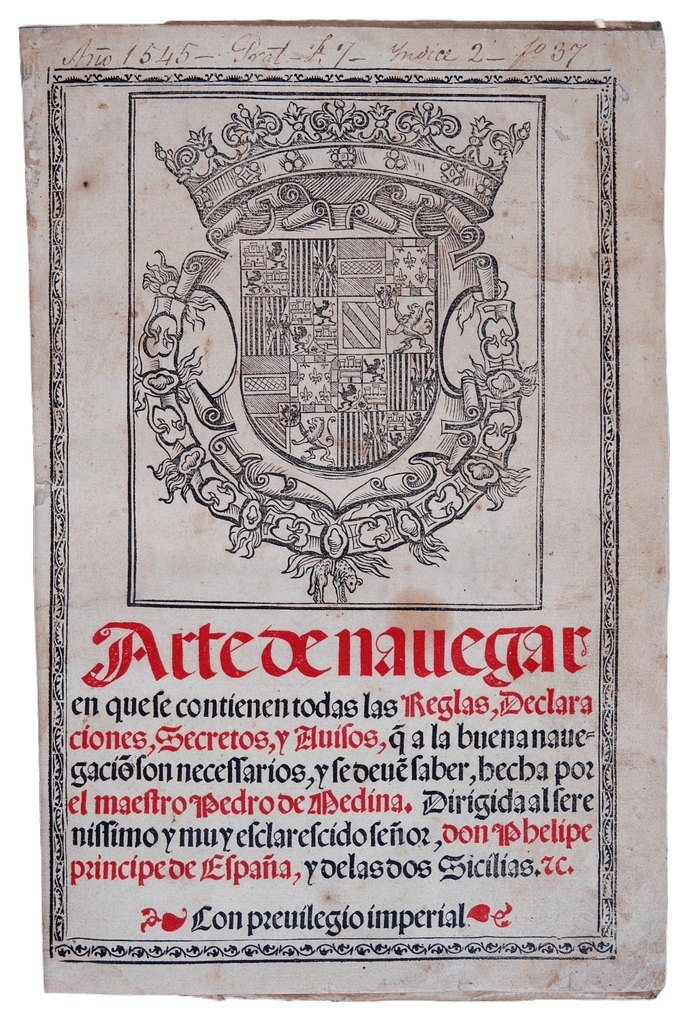 Año 1545 – Prat – F. 7 – Yndice 2 – fo 37
Arte de nauegar
en que se contienen todas las Reglas, Declara
ciones, Secretos, y Auisos, q̃ a la buena naue-
gaciõ son necessarios, y se deuẽ saber, hecha por
el maestro Pedro de Medina. Dirigida al sere
nissimo y muy esclarescido señor, don Phelipe
principe de España, y de las dos Sicilias. ⁊c.
Con preuilegio imperial